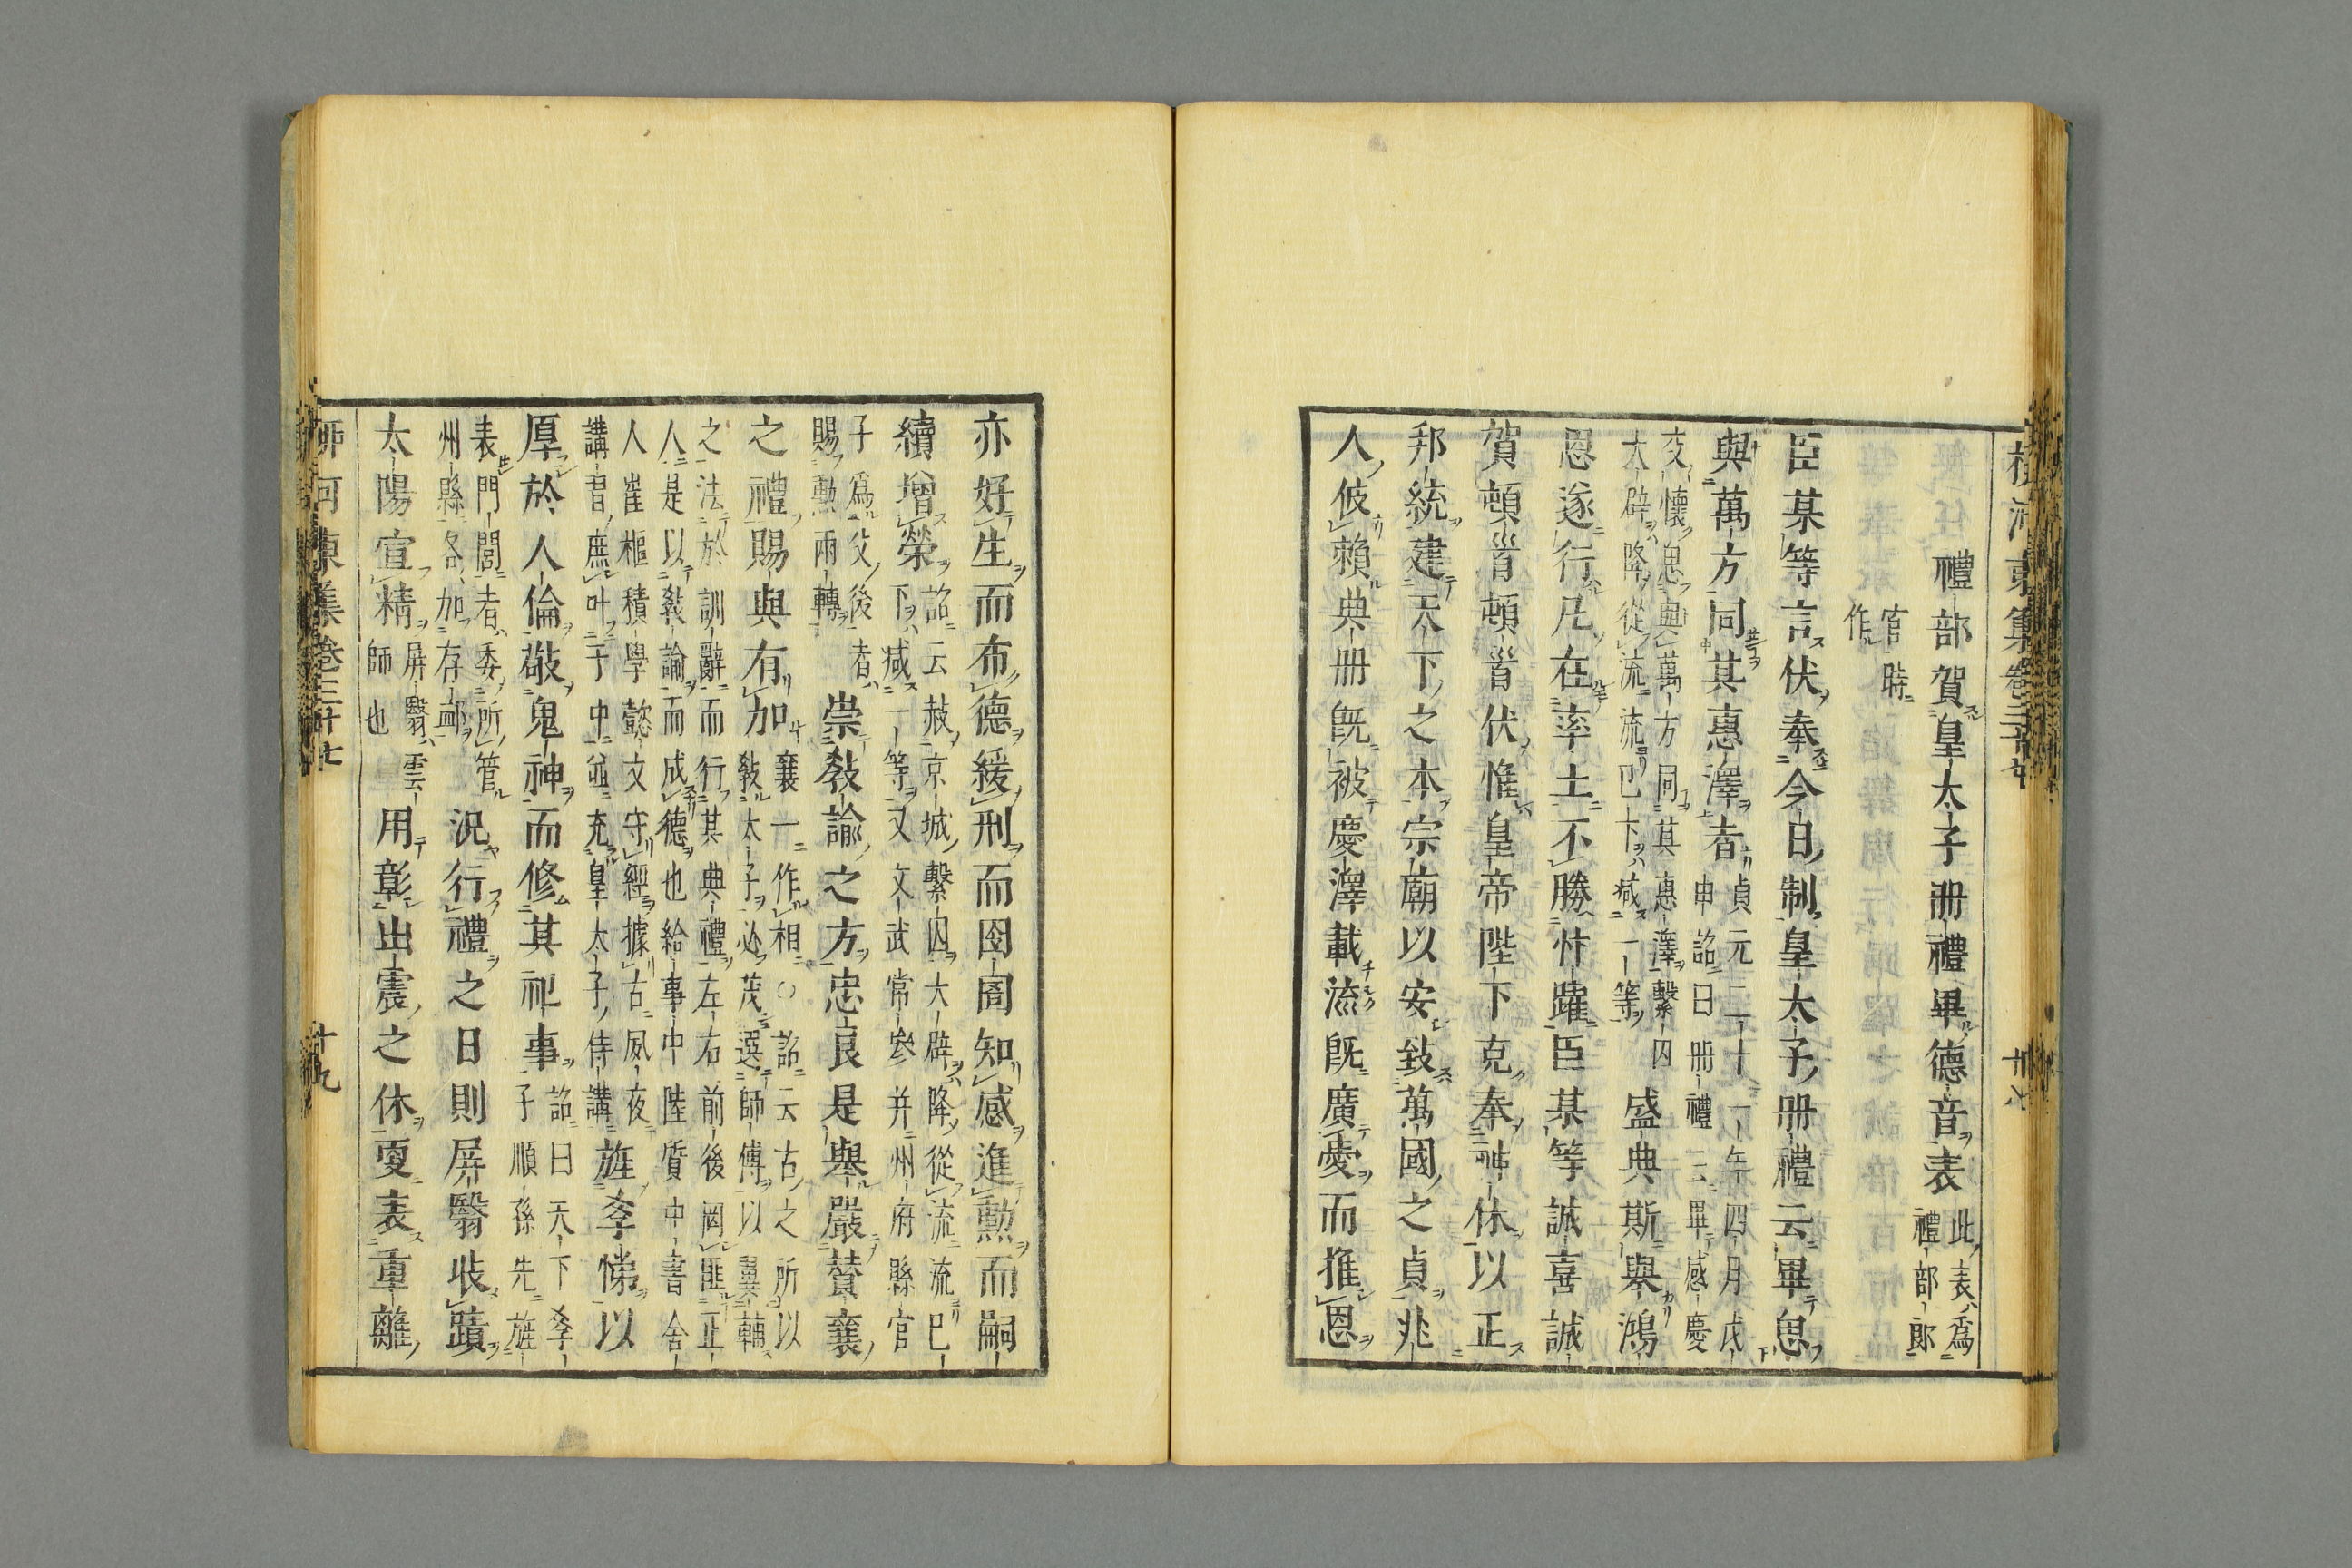 禮部賀皇太子冊禮畢德音表 此表爲禮部郎
官時作
臣某等言伏奉今日制皇太子冊禮云畢思
與萬方同其惠澤者 貞元二十一年四月戊申詔曰冊禮云畢感慶
交懷思與萬方同其惠澤繫囚大辟降從流流已下減一等 盛典斯舉鴻
恩遂行凡在率土不勝忭躍臣某等誠喜誠
賀頓首頓首伏惟皇帝陛下克奉神休以正
邦統建天下之本宗廟以安致萬國之貞兆
人攸賴典冊旣被慶澤載流旣廣愛而推恩
亦好生而布德緩刑而囹圄知感進勲而嗣
續增榮 詔云赦京城繫囚大辟降從流流已下減一等又文武常參并州府縣官
子爲父後者賜勲兩轉 崇敎諭之方忠良是舉嚴贊襄
之禮賜與有加 襄一作相○詔云古之所以敎太子必茂選師傅以翼輔
之法於訓辭而行其典禮左右前後罔匪正人是以敎諭而成德也給事中陸質中書舍
人崔樞積學懿文守經據古夙夜講習庶叶于中並充皇太子侍講 旌孝悌以
厚於人倫敬鬼神而修其祀事 詔曰天下孝子順孫先旌
表門閭者委所管州縣各加存卹 況行禮之日則屏翳收蹟
太陽宣精 屏翳雲師也 用彰出震之休更表重離
柳河東集卷三十七
十九